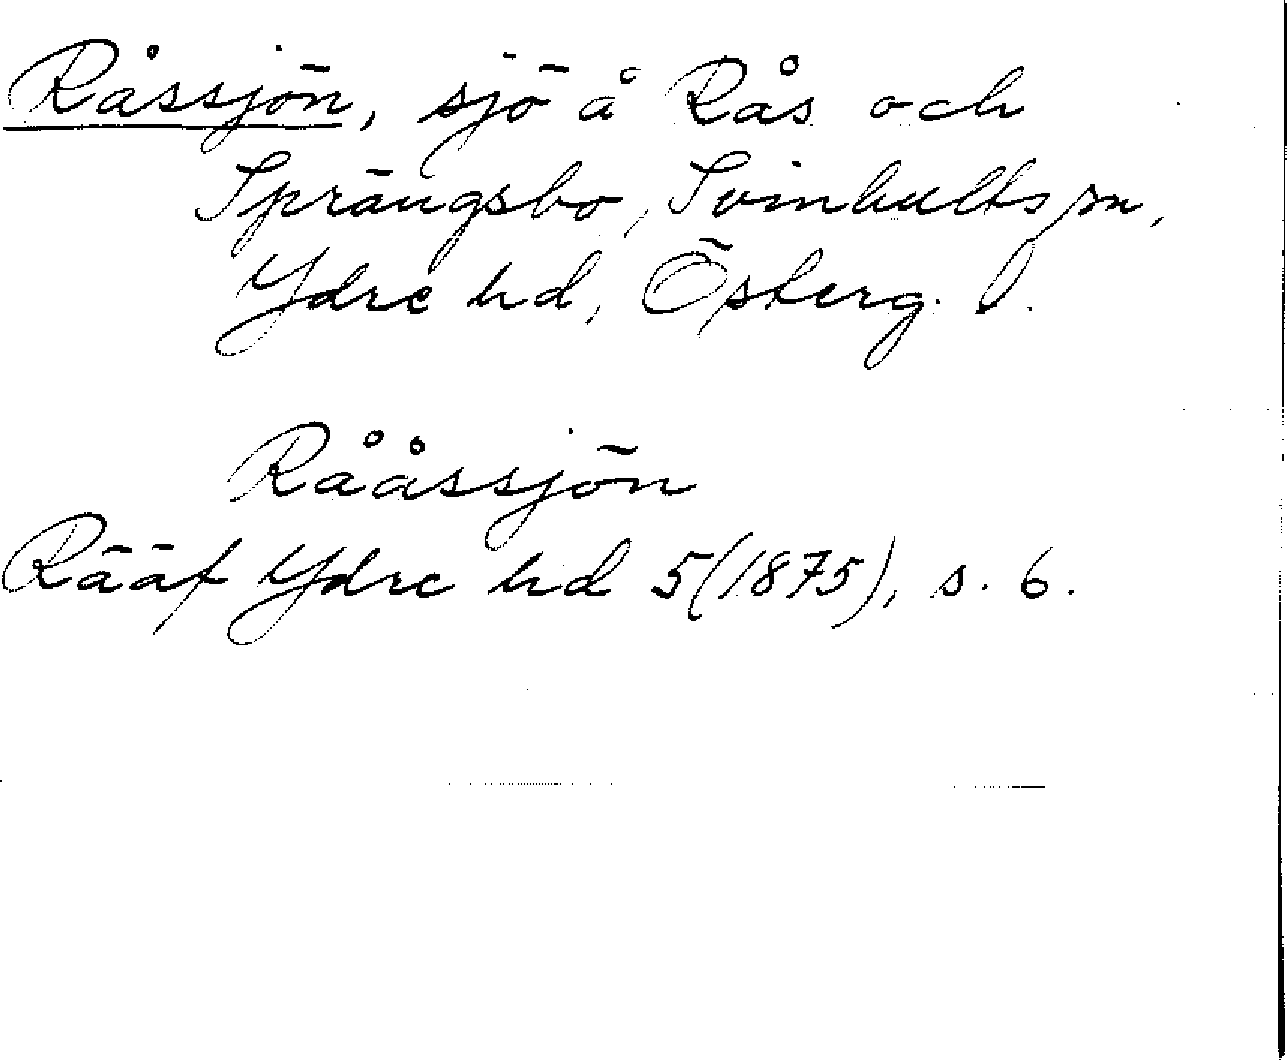 Råssjön, sjö å Rås och
Sprängsbo, Svinhults sn,
Ydre hd, Österg. l.
Rååssjön
Rääf Ydre hd 5(1875), s. 6.